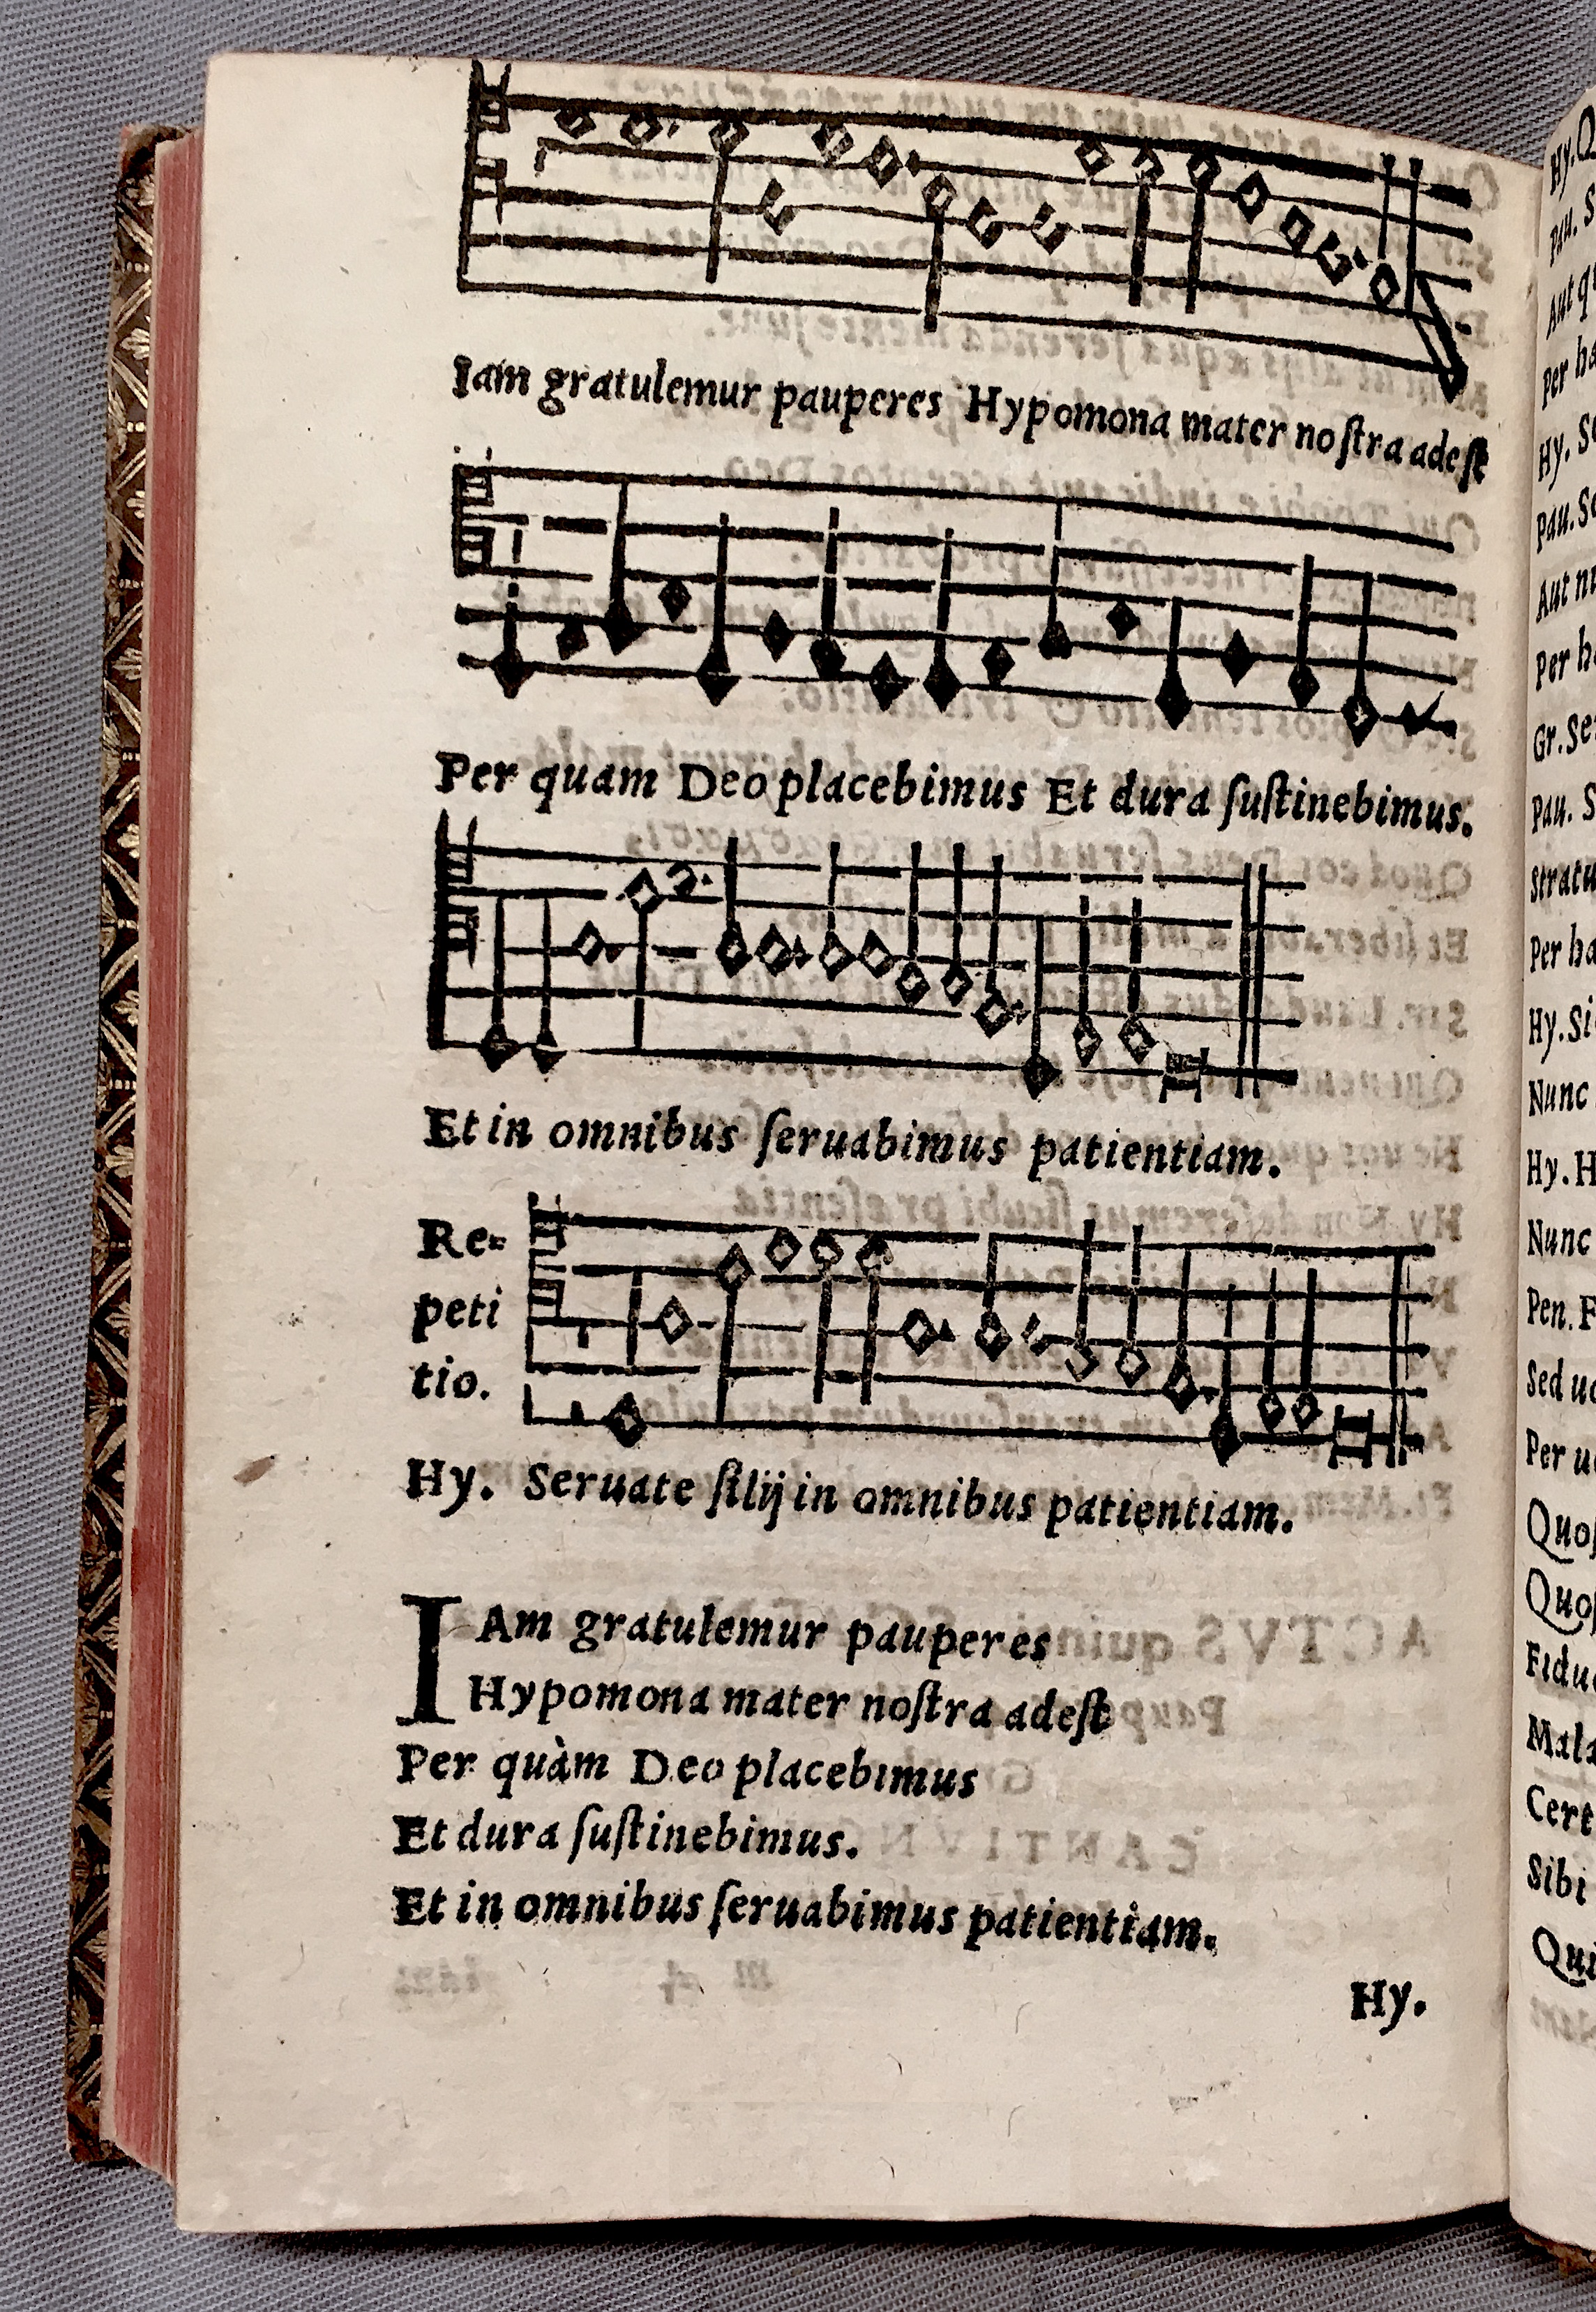 Iam gratulemur pauperes Hypomona mater noſtra adeſt
Per quam Deo placebimus Et dura ſuſtinebimus.
Et in omnibus ſeruabimus patientiam.
Re-
peti
tio.
Hy. Seruate filij in omnibus patientiam.
IAm gratulemur pauperes
Hypomona mater noſtra adeſt
Per quàm Deo placebimus
Et dura ſuſtinebimus.
Et in omnibus ſeruabimus patientiam.
Hy.
Hy.
Pau. S
Aut q
Per ha
Hy. S
Pau. Se
Aut nu
Per h
Gr. Se
Pau. S
Stratu
Per ha
Hy. Si
Nunc
Hy. H
Nunc
Pen. F
Sed u
Per u
Quo
Quo
Fidu
Mala
Cert
Sibi
Qui